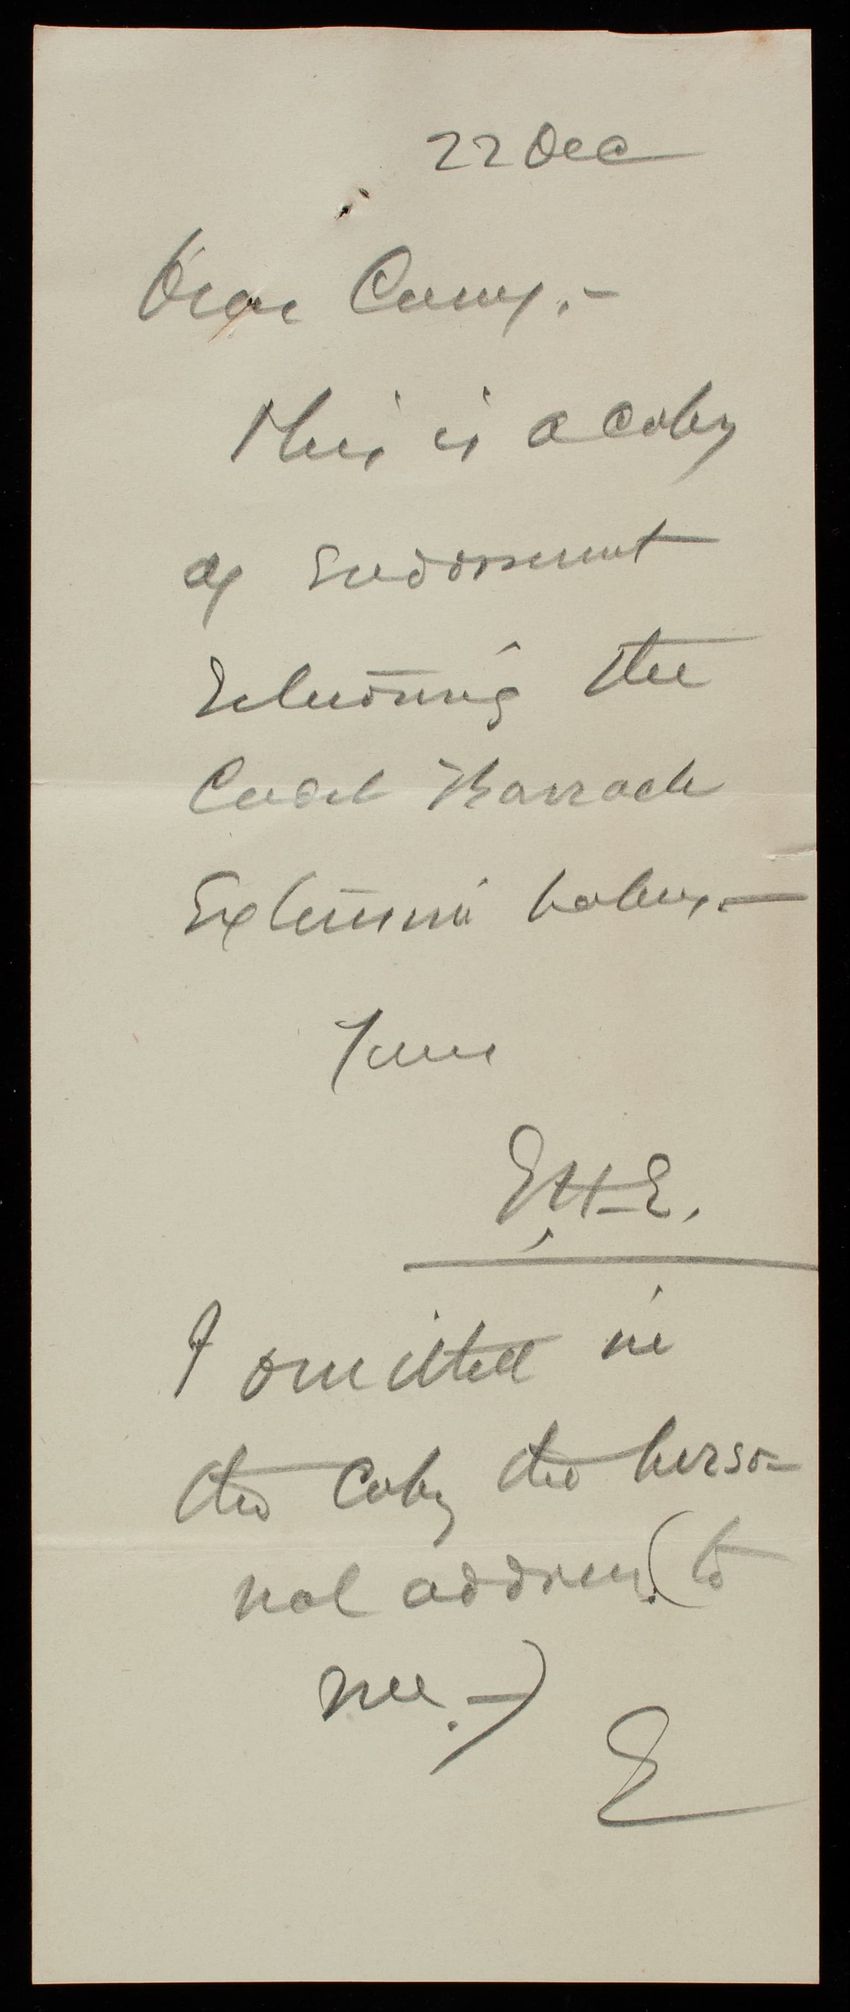 22 Dec
Dear Casey,-
This is a copy
of Endorsement
Returning the
Cadet Barrack
Extension papers.—
Yours
E.H.E.
I omitted in
the Copy the perso-
nal address. (to
me.—)
E